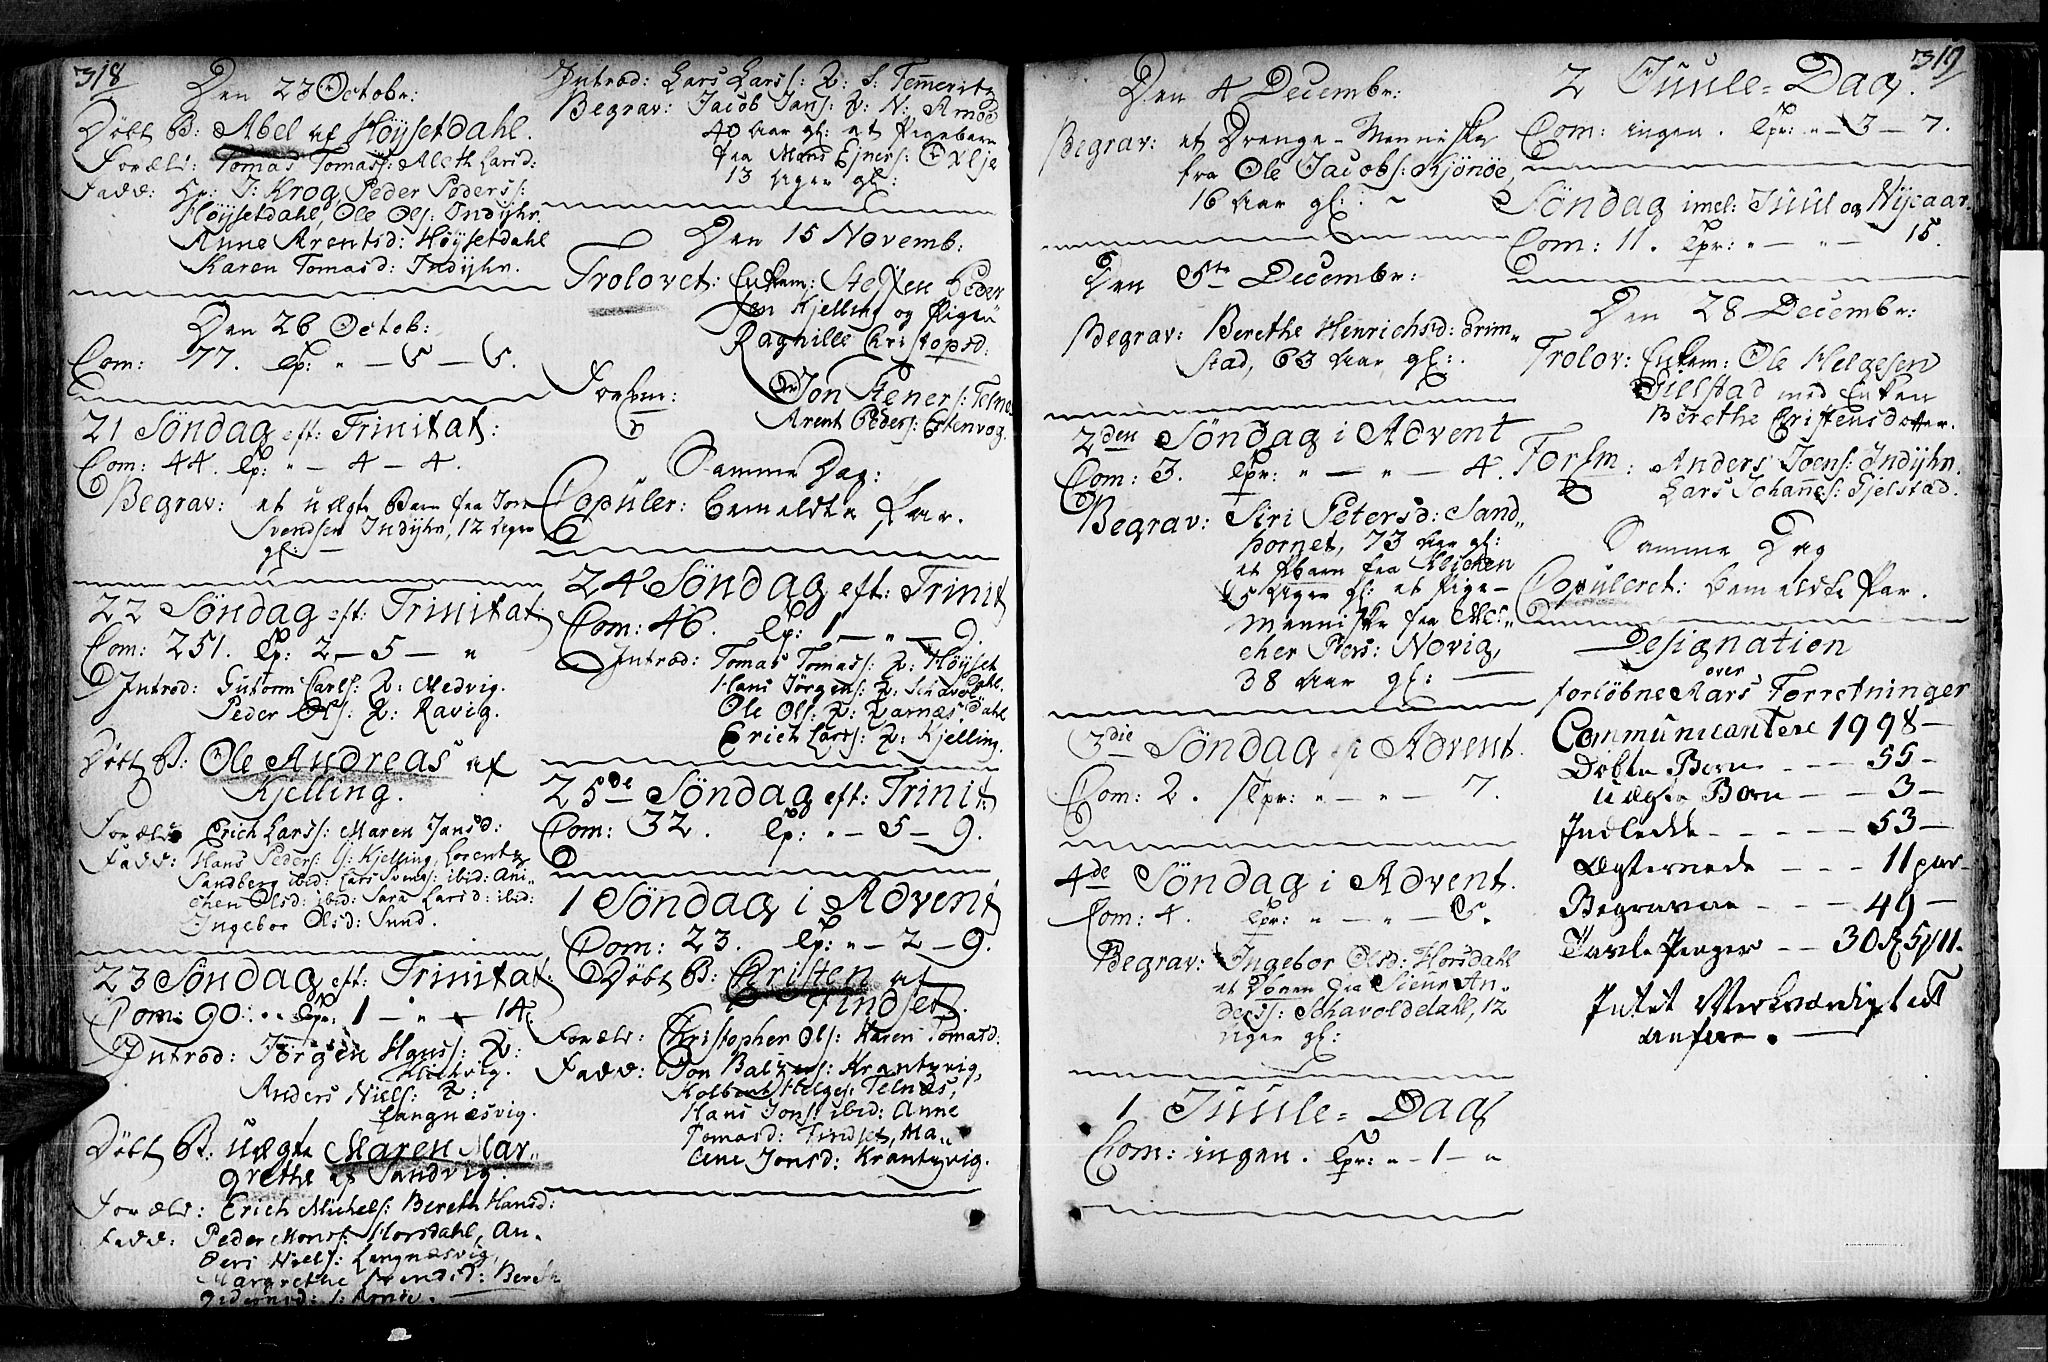 318
Den 23 Octobr:
Döbt B: Abel af Höysetdahl.
Foræld: Tomas Tomass: Aleth Larsd:
Fadd: Hr: J: Krog, Peder Peders:
Höysetdahl, Ole Ols: Indijhr.
Anne Arentsd: Höysetdahl
Karen Tomasd: Indijhr.
Den 26 Octob:
Com: 77. Cp: " — 5 — 5.
21 Söndag eft: Trinitat:
Com: 44. Cp: " — 4 — 4.
Begrav: et uægte Barn fra Jon
Svendsen Indijhr, 12 Uger
gl: —
22 Söndag eft: Trinitat:
Com: 251. Cp: 2 — 5 — "
Introd: Guttorm Carls: Q: Medvig.
Peder Ols: Q: Ravig.
Döbt B: Ole Andreas af
Kjelling.
Foræld: Erich Larss: Maren Jansd:
Fadd: Hans Peders: G: Kjelling, Lorentz
Sandberg ibid: Lars Svens: ibid: Ani-
chen Olsd: ibid: Sara Larsd: ibid:
Ingebor Olsd: Sund.
23 Söndag eft: Trinitat:
Com: 90. Cpr: 1 — " — 14.
Introd: Jörgen Hanss: Q:
Klichvig.
Anders Niels: Q:
Langnæsvig.
Döbt B: uægte Maren Mar-
grethe af Sandvig.
Foræld: Erich Michels: Bereth Hansd:
Fadd: Peder Mons: Horsdahl, An-
ders Niels: Langnæsvig,
Margrethe Svendsd: Bereth
Pedersd: S: Arnöe.
Introd: Lars Larss: Q: S: Temmeritz
Begrav: Jacob Jans: Q: N: Arnöe
40 Aar gl: et Pigebarn
fra Mons Ejners: Evelje
13 Uger gl:
Den 15 Novemb:
Trolovet: Enkem: Steffen Peder
sen Kjelling og Pigen
Ragnille Christopsd:
Forlm: Jon Steners: Telnes
Arent Peders: Estenvog.
Samme Dag:
Copuler: bemeldte Par.
24 Söndag eft: Trinit
Com: 46. Cp: 1 — " — 9.
Introd: Tomas Tomass: Q: Höyset
dahl.
Hans Jörgens: Q: Schavol
dahl
Ole Ols: Q: Qarnæs.
Erich Larss: Q: Kjelling.
25de Söndag eft: Trinit:
Com: 32. Cp: " — 5 — 9.
1 Söndag i Advent
Com: 23. Cp: " — 2 — 9.
Döbt B: Christen af
Tindset.
Foræld: Christopher Ols: Karen Tomasd:
Fadd: Jon Baltzers: Krantzvig,
Kolbent Helges: Telnæs,
Hans Jons: ibid: Anne
Tomasd: Tindset, Ma-
rene Jonsd: Krantzvig.
319
Den 4 Decembr:
Begrav: et Drenge-Menniske
fra Ole Jacobs: Kjönöe,
16 Aar gl: —
Den 5te Decembr:
Begrav: Berethe Henrichsd: Grim-
stad, 63 Aar gl:
2den Söndag i Advent
Com: 3. Cpr: " — " — 4.
Begrav: Siri Petersd: Sand-
hornet, 73 Aar gl:
et Barn fra Klichen
5 Uger gl: et Pige-
Menniske fra Mel-
cher Pers: Novig,
38 Aar gl: —
3die Söndag i Advent.
Com: 2. Cpr: " — " — 7.
4de Söndag i Advent.
Com: 4. Cpr: " — " — 5.
Begrav: Ingebor Olsd: Horsdahl
et Barn fra Sieur An-
derss: Schavoldetahl, 12
Uger gl:
1 Juule-Dag
Com: ingen. Cpr: " — 1 — "
2 Juule-Dag.
Com: ingen. Cpr: " — 3 — 7.
Söndag imel: Juul og Nyeaar.
Com: 11. Cpr: " — " — 15.
Den 28 Decembr:
Trolov: Enkem: Ole Helgesen
Gillstad med Enken
Berethe Cristensdotter.
Forlm: Anders Joens: Indijhr.
Lars Johannes: Gjelstad.
Samme Dag
Copuleret: bemeldte Par.
Designation
over
forlöbne Aars Forretninger
Communicantere 1998 —
Döbte Börn — — — 55 —
uægte Börn — — 3 —
Indledde — — — — — 53 —
Ægteviede — — — 11 par —
Begravne — — — 49 —
Tavle Penger — — 30 R 5 / 11.
Intet Merkværdigt at
anföre. —